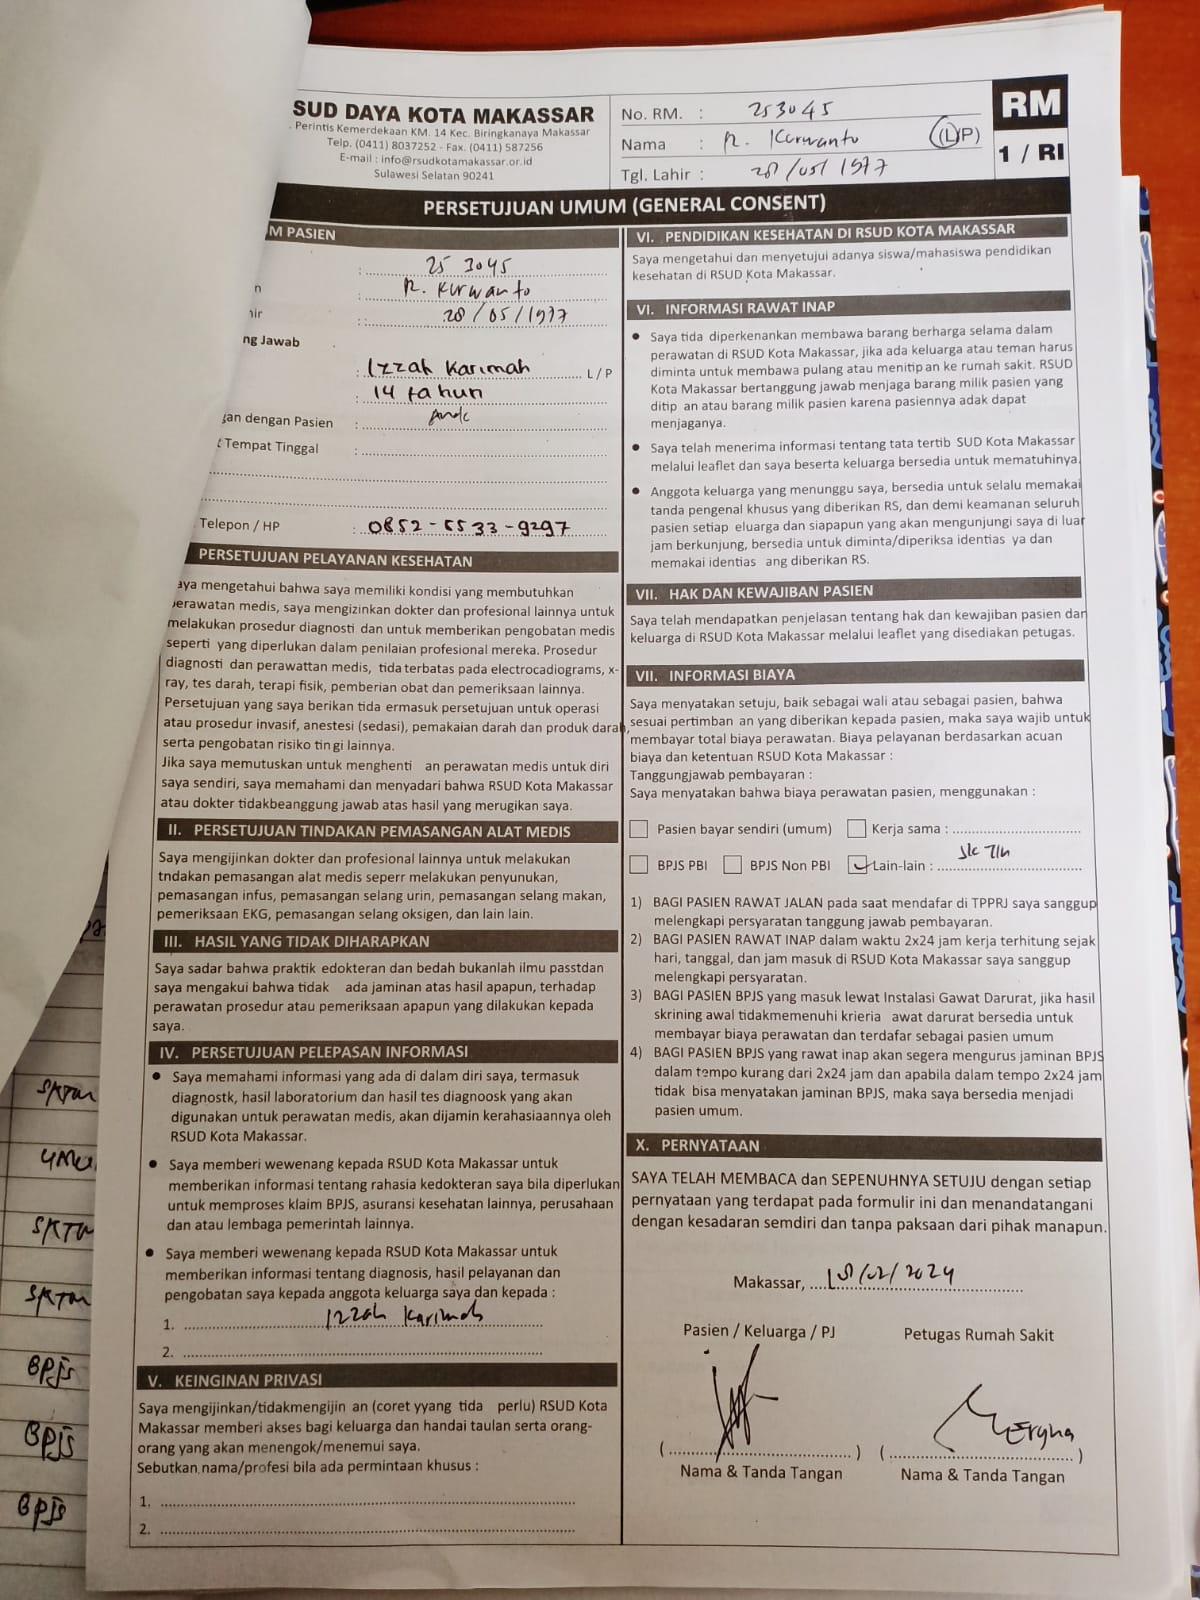 SUD DAYA KOTA MAKASSAR
. Perintis Kemerdekaan KM. 14 Kec. Biringkanaya Makassar
Telp. (0411) 8037252 - Fax. (0411) 587256
E-mail : info@rsudkotamakassar.or.id
Sulawesi Selatan 90241
No. RM. : 253045
Nama : R. Kurwanto (L/P)
Tgl. Lahir : 28/05/1977
RM
1 / RI
PERSETUJUAN UMUM (GENERAL CONSENT)
M PASIEN
: 25 3045
n : R. Kurwanto
hir : 28/05/1977
ng Jawab
: Izzah Karimah L / P
: 14 tahun
gan dengan Pasien : Anak
t Tempat Tinggal :
Telepon / HP : 0852-5533-9297
PERSETUJUAN PELAYANAN KESEHATAN
aya mengetahui bahwa saya memiliki kondisi yang membutuhkan
perawatan medis, saya mengizinkan dokter dan profesional lainnya untuk
melakukan prosedur diagnosti dan untuk memberikan pengobatan medis
seperti yang diperlukan dalam penilaian profesional mereka. Prosedur
diagnosti dan perawattan medis, tida terbatas pada electrocadiograms, x-
ray, tes darah, terapi fisik, pemberian obat dan pemeriksaan lainnya.
Persetujuan yang saya berikan tida ermasuk persetujuan untuk operasi
atau prosedur invasif, anestesi (sedasi), pemakaian darah dan produk darah,
serta pengobatan risiko tin gi lainnya.
Jika saya memutuskan untuk menghenti an perawatan medis untuk diri
saya sendiri, saya memahami dan menyadari bahwa RSUD Kota Makassar
atau dokter tidakbeanggung jawab atas hasil yang merugikan saya.
II. PERSETUJUAN TINDAKAN PEMASANGAN ALAT MEDIS
Saya mengijinkan dokter dan profesional lainnya untuk melakukan
tndakan pemasangan alat medis seperr melakukan penyunukan,
pemasangan infus, pemasangan selang urin, pemasangan selang makan,
pemeriksaan EKG, pemasangan selang oksigen, dan lain lain.
III. HASIL YANG TIDAK DIHARAPKAN
Saya sadar bahwa praktik edokteran dan bedah bukanlah ilmu passtdan
saya mengakui bahwa tidak ada jaminan atas hasil apapun, terhadap
perawatan prosedur atau pemeriksaan apapun yang dilakukan kepada
saya.
IV. PERSETUJUAN PELEPASAN INFORMASI
• Saya memahami informasi yang ada di dalam diri saya, termasuk
diagnostk, hasil laboratorium dan hasil tes diagnoosk yang akan
digunakan untuk perawatan medis, akan dijamin kerahasiaannya oleh
RSUD Kota Makassar.
• Saya memberi wewenang kepada RSUD Kota Makassar untuk
memberikan informasi tentang rahasia kedokteran saya bila diperlukan
untuk memproses klaim BPJS, asuransi kesehatan lainnya, perusahaan
dan atau lembaga pemerintah lainnya.
• Saya memberi wewenang kepada RSUD Kota Makassar untuk
memberikan informasi tentang diagnosis, hasil pelayanan dan
pengobatan saya kepada anggota keluarga saya dan kepada :
1. Izzah Karimah
2.
V. KEINGINAN PRIVASI
Saya mengijinkan/tidakmengijin an (coret yyang tida perlu) RSUD Kota
Makassar memberi akses bagi keluarga dan handai taulan serta orang-
orang yang akan menengok/menemui saya.
Sebutkan nama/profesi bila ada permintaan khusus :
1.
2.
VI. PENDIDIKAN KESEHATAN DI RSUD KOTA MAKASSAR
Saya mengetahui dan menyetujui adanya siswa/mahasiswa pendidikan
kesehatan di RSUD Kota Makassar.
VI. INFORMASI RAWAT INAP
• Saya tida diperkenankan membawa barang berharga selama dalam
perawatan di RSUD Kota Makassar, jika ada keluarga atau teman harus
diminta untuk membawa pulang atau menitip an ke rumah sakit. RSUD
Kota Makassar bertanggung jawab menjaga barang milik pasien yang
ditip an atau barang milik pasien karena pasiennya adak dapat
menjaganya.
• Saya telah menerima informasi tentang tata tertib SUD Kota Makassar
melalui leaflet dan saya beserta keluarga bersedia untuk mematuhinya.
• Anggota keluarga yang menunggu saya, bersedia untuk selalu memakai
tanda pengenal khusus yang diberikan RS, dan demi keamanan seluruh
pasien setiap eluarga dan siapapun yang akan mengunjungi saya di luar
jam berkunjung, bersedia untuk diminta/diperiksa identias ya dan
memakai identias ang diberikan RS.
VII. HAK DAN KEWAJIBAN PASIEN
Saya telah mendapatkan penjelasan tentang hak dan kewajiban pasien dan
keluarga di RSUD Kota Makassar melalui leaflet yang disediakan petugas.
VII. INFORMASI BIAYA
Saya menyatakan setuju, baik sebagai wali atau sebagai pasien, bahwa
sesuai pertimban an yang diberikan kepada pasien, maka saya wajib untuk
membayar total biaya perawatan. Biaya pelayanan berdasarkan acuan
biaya dan ketentuan RSUD Kota Makassar :
Tanggungjawab pembayaran :
Saya menyatakan bahwa biaya perawatan pasien, menggunakan :
Pasien bayar sendiri (umum) Kerja sama :
BPJS PBI BPJS Non PBI Lain-lain :
1) BAGI PASIEN RAWAT JALAN pada saat mendafar di TPPRJ saya sanggup
melengkapi persyaratan tanggung jawab pembayaran.
2) BAGI PASIEN RAWAT INAP dalam waktu 2x24 jam kerja terhitung sejak
hari, tanggal, dan jam masuk di RSUD Kota Makassar saya sanggup
melengkapi persyaratan.
3) BAGI PASIEN BPJS yang masuk lewat Instalasi Gawat Darurat, jika hasil
skrining awal tidakmemenuhi krieria awat darurat bersedia untuk
membayar biaya perawatan dan terdafar sebagai pasien umum
4) BAGI PASIEN BPJS yang rawat inap akan segera mengurus jaminan BPJS
dalam tempo kurang dari 2x24 jam dan apabila dalam tempo 2x24 jam
tidak bisa menyatakan jaminan BPJS, maka saya bersedia menjadi
pasien umum.
X. PERNYATAAN
SAYA TELAH MEMBACA dan SEPENUHNYA SETUJU dengan setiap
pernyataan yang terdapat pada formulir ini dan menandatangani
dengan kesadaran semdiri dan tanpa paksaan dari pihak manapun.
Makassar, /02/2024
Pasien / Keluarga / PJ Petugas Rumah Sakit
( ) ( )
Nama & Tanda Tangan Nama & Tanda Tangan
SKTM
UMU
SKTM
SKTM
BPJS
BPJS
BPJS